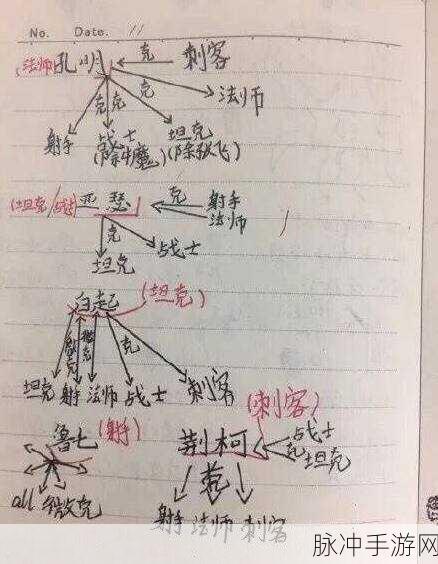 No. Date. 11
(法师 孔明 克 刺客
克 法师
克克
射手 战士 坦克
(除牛魔) (除张飞)
(坦克/战士) 亚瑟 克 射手
法师
克
战士
坦克
白起 (坦克)
克
坦克 射手 法师 战士 刺客
鲁七 (射) (刺客)
荆柯 战士
克 坦克
惹
all 微克
射手 法师 刺客
脉冲手游网